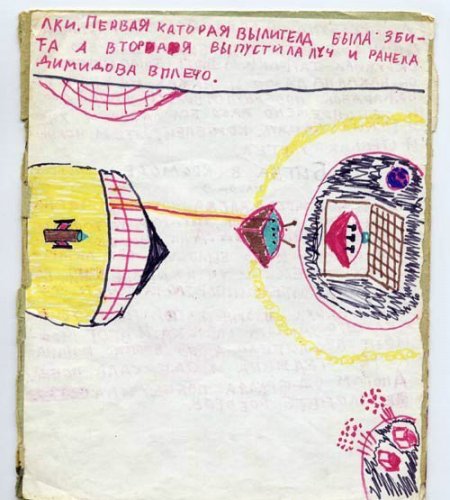 лки. Первая каторая вылитела была зби-
та а вторная выпустила луч и ранела
Димидова вплечо.